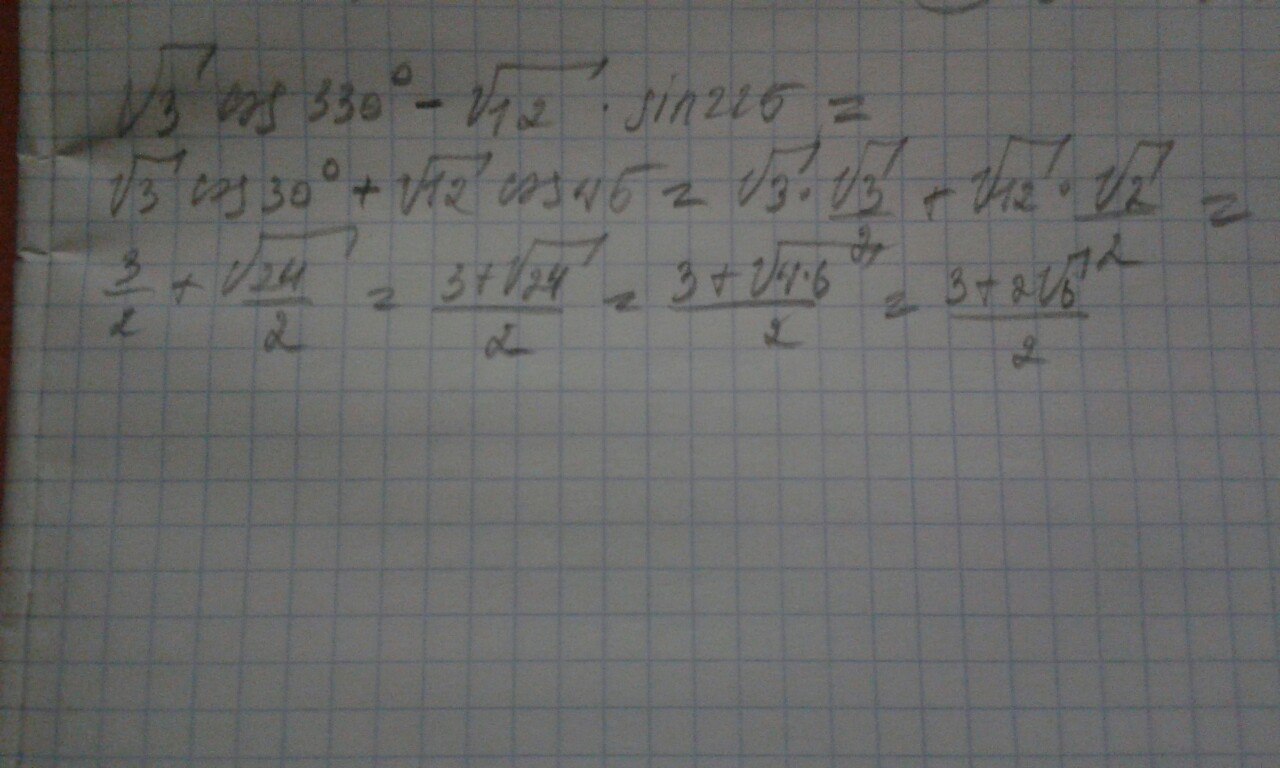 √3 cos 330° - √12 · sin 225 =
√3 cos 30° + √12 cos 45 = √3 · √3/2 + √12 · √2/2 =
3/2 + √24/2 = (3+√24)/2 = (3+√4·6)/2 = (3+2√6)/2